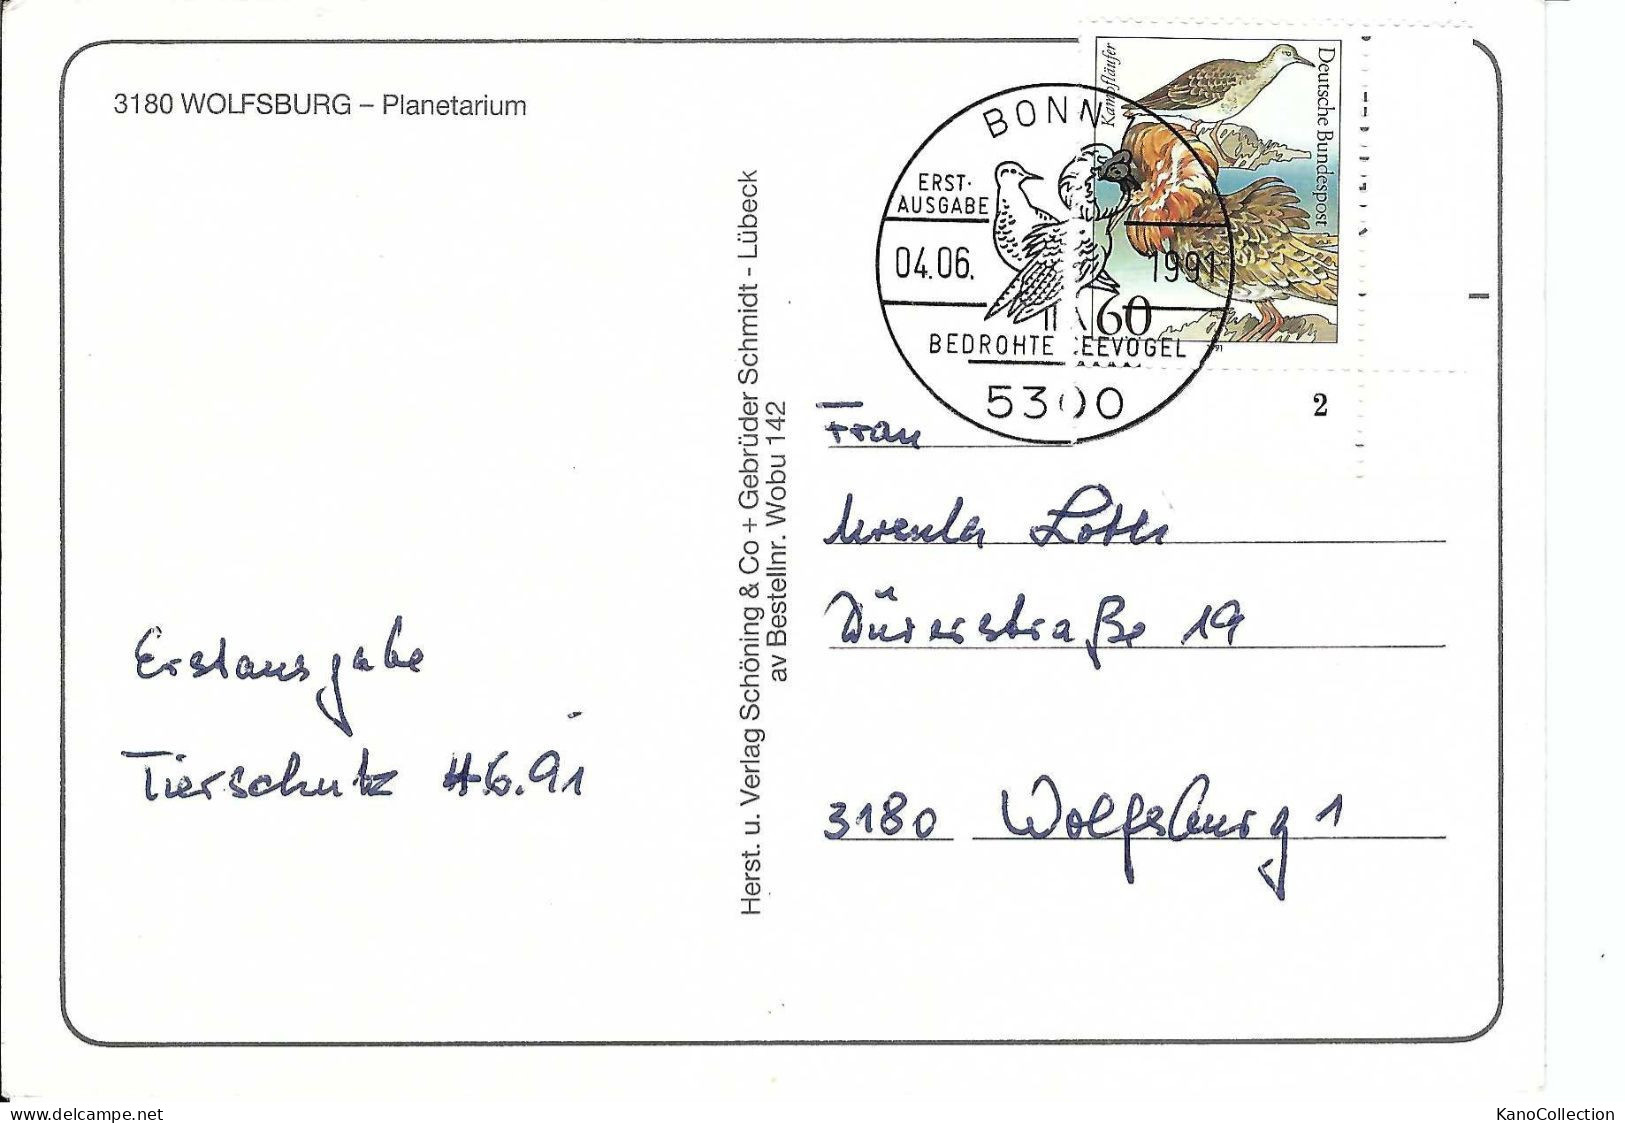 3180 WOLFSBURG – Planetarium
Kampfläufer
Deutsche Bundespost
60
BONN
ERST-
AUSGABE
04.06. 1991
BEDROHTE SEEVÖGEL
5300
2
Herst. u. Verlag Schöning & Co + Gebrüder Schmidt - Lübeck
av Bestellnr. Wobu 142
Frau
Ursula Loth
Dürerstraße 19
3180 Wolfsburg 1
Erstausgabe
Tierschutz 4.6.91
www.delcampe.net
KanoCollection